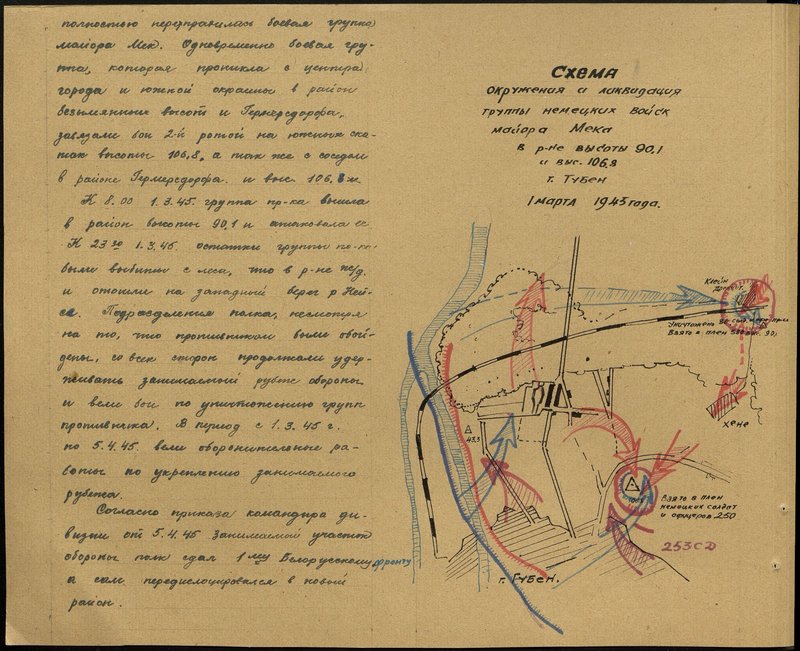 полностью переправилась боевая группа
майора Мек. Одновременно боевая гру-
ппа, которая проникла с центра
города и южной окраины в район
безымянные высот и Гермерсдорфа,
завязали бои 2-й ротой на южных ска-
тах высоты 106,8, а так же с соседом
в районе Гермерсдорфа. и выс. 106,8
К 8.00 1.3.45. группа пр-ка вышла
в район высоты 90,1 и атаковала ее
К 23 30 1.3.45. остатки группы
были выбиты с леса, что в р-не ж/д.
и отошли на западный берег р Ней-
се. Подразделения полка, несмотря
на то, что противником были обой-
дены, со всех сторон продолжали удер-
живать занимаемый рубеж обороны
и вели бои по уничтожению групп
противника. В период с 1.3.45 г.
по 5.4.45. вели оборонительные ра-
боты по укреплению занимаемого
рубежа.
Согласно приказа командира ди-
визии от 5.4.45 занимаемый участок
обороны полк сдал 1 му Белорусскому фронту
а сам передислоцировался в новый
район.
Схема
окружения и ликвидация
группы немецких войск
майора Мека
в р-не высоты 90,1
и выс. 106,8
г. Губен
1 марта 1945 года.
Клейн
Уничтожено
Взято в плен
хене
43,3
Взято в плен
немецких солдат
и офицеров 250
253 СД
г. Губен.